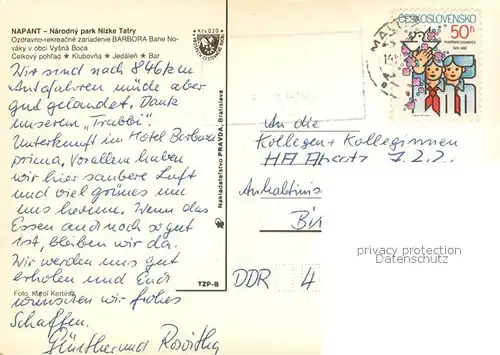 NAPANT – Národný park Nízke Tatry
Ozdravno-rekreačné zariadenie BARBORA Bane No-
váky v obci Vyšná Boca
Celkový pohľad ★ Klubovňa ★ Jedáleň ★ Bar
Wir sind nach 846 km
Autofahren müde aber
gut gelandet. Dank
unserem „Trabbi".
Unterkunft im Hotel Barbora
prima, Vorallem haben
wir hier saubere Luft
und viel grünes um
uns herum. Wenn das
Essen auch noch so gut
ist, bleiben wir da.
Wir werden uns gut
erholen und Euch
wünschen wir frohes
Schaffen.
Günther und Roswitha
Foto: Karol Kertész
TZP-B
Nakladateľstvo PRAVDA, Bratislava
ČESKOSLOVENSKO
50 h
An die
Kollegen + Kolleginnen
HA
Anhaltinis
Bi
DDR 4
privacy protection
Datenschutz